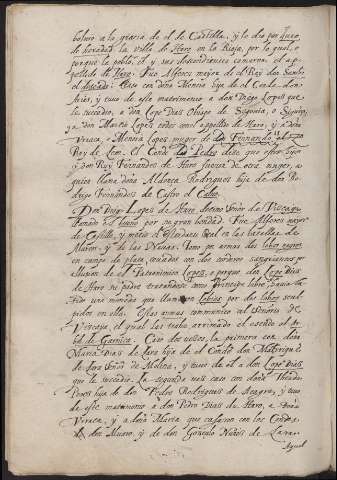 boluio a la gracia de el de Castilla, y le dio por Juro
de heredad la Villa de Haro en la Rioja, por lo qual, o
porque la poblo, el y sus descendientes tomaron el ap-
pellido de Haro. Fue Alferez mayor de el Rey don Sancho
el deseado. Caso con doña Mencia hija de el Conde don
Arias, y tuuo de este matrimonio a don Diego Lopes que
le succedio, a don Lope Dias Obispo de Segouia, o Siguen
ça, don Martin Lopes todos con el appellido de Haro, y a doña
Vrraca, o Mencia Lopes muger de Don Fernando el 2º
Rey de Leon. El Conde Don Pedro dize que este hijo
y don Ruy Fernandes de Haro fueron de otra muger, a
quien llama doña Aldonça Rodrigues hija de don Ro-
drigo Fernandes de Castro el Caluo.
Don Diego Lopes de Haro decimo Señor de Viscaya
llamado el bueno por su gran bondad. Fue Alferez mayor
de Castilla, y metio el Estandarte Real en las batallas de
Alarcos, y de las Nauas. Tomo por armas dos lobos negros
en campo de plata, ceuados con dos corderos sangrientos por
allusion de el Patronimico Lopes, o porque don Lope Dias
de Haro su padre tratandose como Principe libre, hauia ba-
tido una moneda que llamaron Lobies por dos lobos escul-
pidos en ella. Estas armas communico al Señorio de
Viscaya, el qual las traho arrimado el escudo al Ar-
bol de Garnica. Caso dos veses, la primera con doña
Maria Dias de Lara hija de el Conde don Manrique
de Lara Señor de Molina, y tuuo de el a don Lope Dias
que le succedio. La segunda ues caso con doña Theoda
Peres hija de don Pedro Rodrigues de Asagra, y tuuo
de este matrimonio a don Pedro Dias de Haro, a doña
Vrraca, y a doña Maria que casaron con los Condes
de don Aluaro, y de don Gonçalo Nuñes de Lara.
Aquel